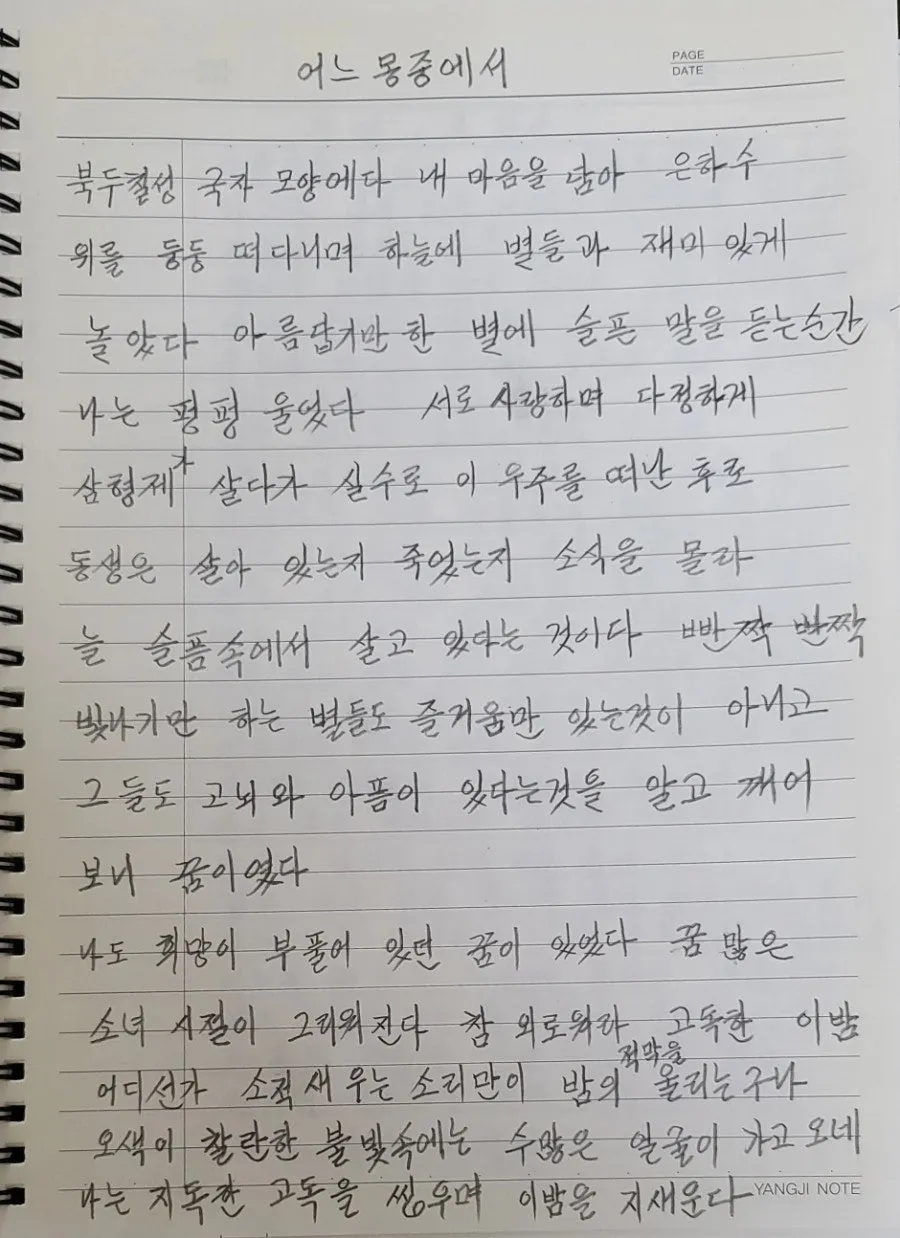 어느 몽중에서
PAGE
DATE
북두칠성 국자 모양에다 내 마음을 담아 은하수
위를 둥둥 떠다니며 하늘에 별들과 재미 있게
놀았다 아름답기만 한 별에 슬픈 말을 듣는순간
나는 펑펑 울었다 서로 사랑하며 다정하게
삼형제가 살다가 실수로 이 우주를 떠난 후로
동생은 살아 있는지 죽었는지 소식을 몰라
늘 슬픔속에서 살고 있다는 것이다 빤짝 빤짝
빛나기만 하는 별들도 즐거움만 있는것이 아니고
그들도 고뇌와 아픔이 있다는것을 알고 깨어
보니 꿈이였다
나도 희망이 부풀어 있던 꿈이 있었다 꿈 많은
소녀 시절이 그리워진다 참 외로워라 고독한 이밤
어디선가 소적새 우는 소리만이 밤의 적막을 울리는구나
오색이 찰란한 불빛속에는 수많은 얼굴이 가고 오네
나는 지독한 고독을 씹우며 이밤을 지새운다
YANGJI NOTE